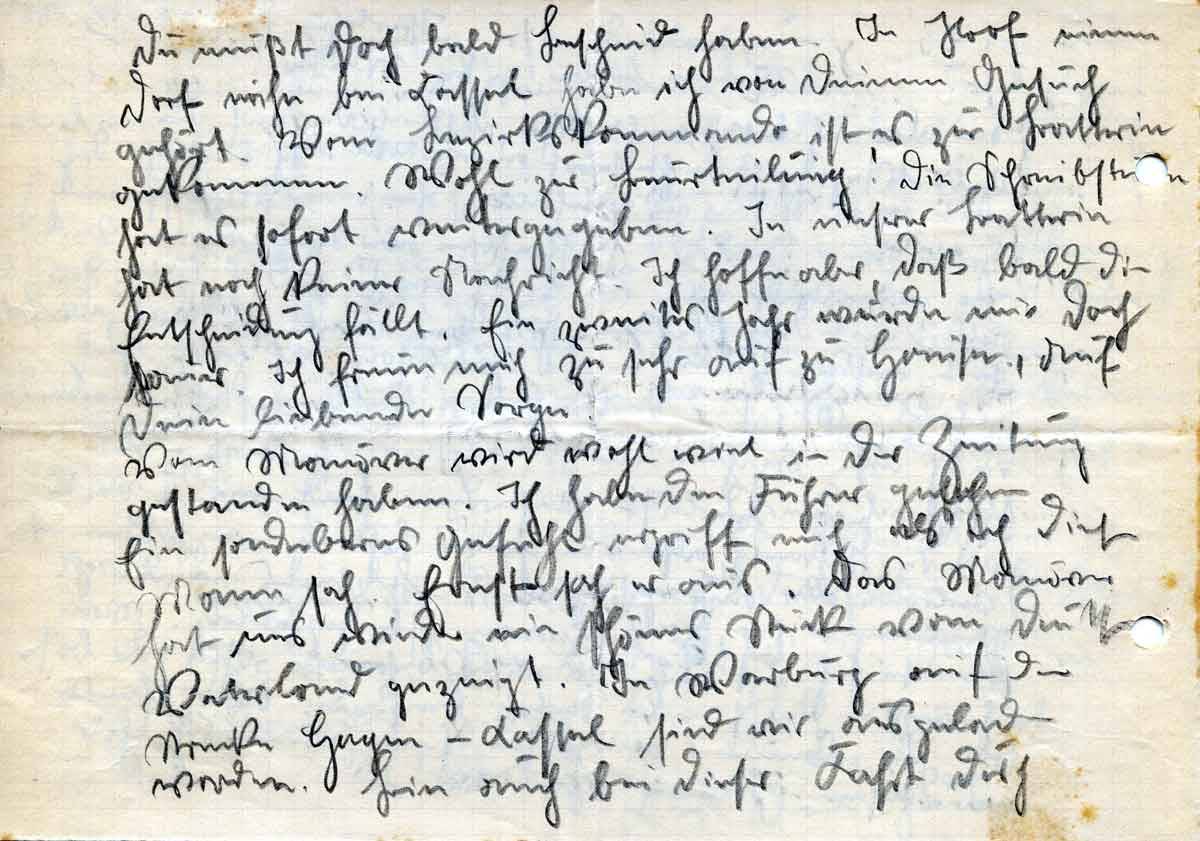 Du mußt doch bald Bescheid haben. In Hoof einem
Dorf nahe bei Kassel habe ich von Deinem Gesuch
gehört. Vom Bezirkskommando ist es zur Batterie
gekommen. Wohl zur Beurteilung! Die Schreibstube
hat es sofort weitergegeben. In unserer Batterie
hat noch keiner Nachricht. Ich hoffe aber, daß bald die
Entscheidung fällt. Ein zweites Jahr würde mir doch
sauer. Ich freue mich zu sehr auf zu Hause, auf
Deine liebende Sorge.
Vom Manöver wird wohl viel in der Zeitung
gestanden haben. Ich habe den Führer gesehen
Ein sonderbares Gefühl ergriff mich als ich dies
Mann sah. Ernst sah er aus. Das Manöver
hat uns wieder ein schönes Stück vom deutsch
Vaterland gezeigt. In Warburg auf der
Strecke Hagen – Kassel sind wir ausgelad
worden. Fein auch bei dieser Fahrt durch